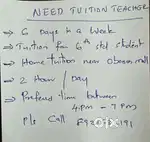 NEED TUITION TEACHER
→ 6 Days in a week
→ Tuition for 6th std student
→ Home tuition near oberon mall
→ 2 Hour / Day
→ Prefered time between
4 P.M - 7 P.M
Pls Call
OLX